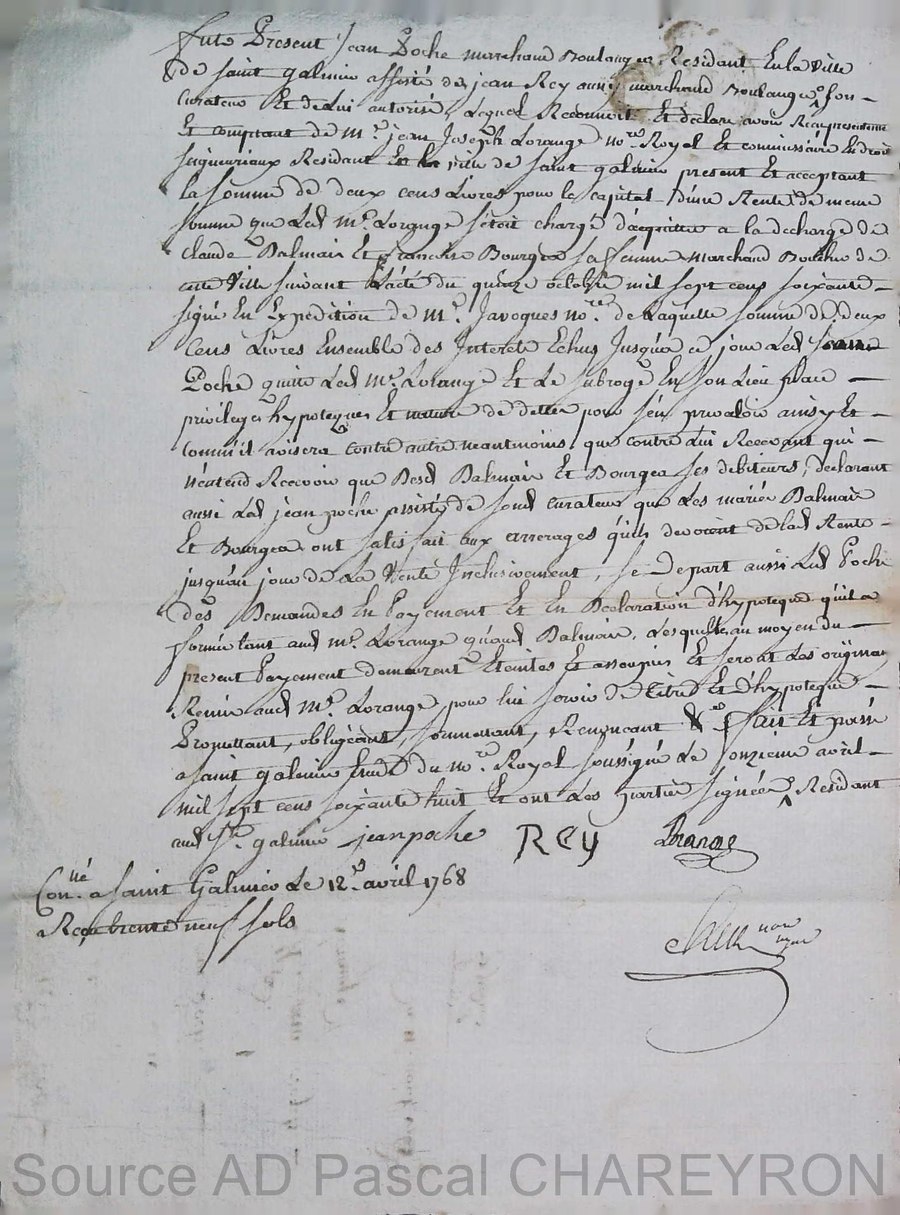 fute Present Jean Poche marchand Boulanger Residant En la ville
de saint galmier assisté de jean Rey ainé marchand Boulanger son
Curateur Et de lui autorisé, Lequel Reconnoit Et declare avoir Reçu presentement
Et comptant de Mr. jean Joseph Lorange nore. Royal Et commissaire En droit
seigneuriaux Residant En la ville de saint galmier present Et acceptant
La somme de deux cens Livres pour le capital d'une Rente de meme
somme que Led Mr. Lorange s'étoit chargé d'acquitter a la decharge de
Claude Balmain Et francoise Bourgea sa femme Marchand Boucher de
cette Ville suivant L'acte du quinze octobre mil sept cens soixante
signé En Expedition de Mr. Javogues nore. de Laquelle somme de deux
Cens Livres Ensemble des Interets Echus Jusqu'a ce jour Led
Poche quitte Led Mr. Lorange Et Le subroge En son Lieu place
privileges hypoteques Et nature de dette pour s'en prevaloir ainsy Et
Comm'il avisera contre autre neantmoins que contre Lui Recevant qui
n'entend Recevoir que Desd Balmain Et Bourgea ses debiteurs, declarant
aussi Led jean poche assisté de sond curateur que Les mariés Balmain
Et Bourgea ont satisfait aux arrerages qu'ils devoient de lad Rente
jusqu'au jour de La Vente Inclusivement, se Depart aussi Led Poche
des Demandes En Payement Et En Declaration d'hypoteque qu'il a
formée tant aud Mr. Lorange qu'aud Balmain, Lesquelles au moyen du
present Payement demeurent Eteintes Et assoupies Et seront Les originaux
Remis aud Mr. Lorange, pour lui servir de titre Et d'hypoteque
Promettant, obligeant, soumettant, Renoncant &. fait Et passé
a saint galmier Etude du nore. Royal soussigné Le onzieme avril
mil sept cens soixante huit Et ont Les parties signées ^ Residant
aud St. galmier jean poche REY Lorange
Conné. a saint Galmier Le 12e. avril 1768
Reçu trente neuf sols
Source AD Pascal CHAREYRON